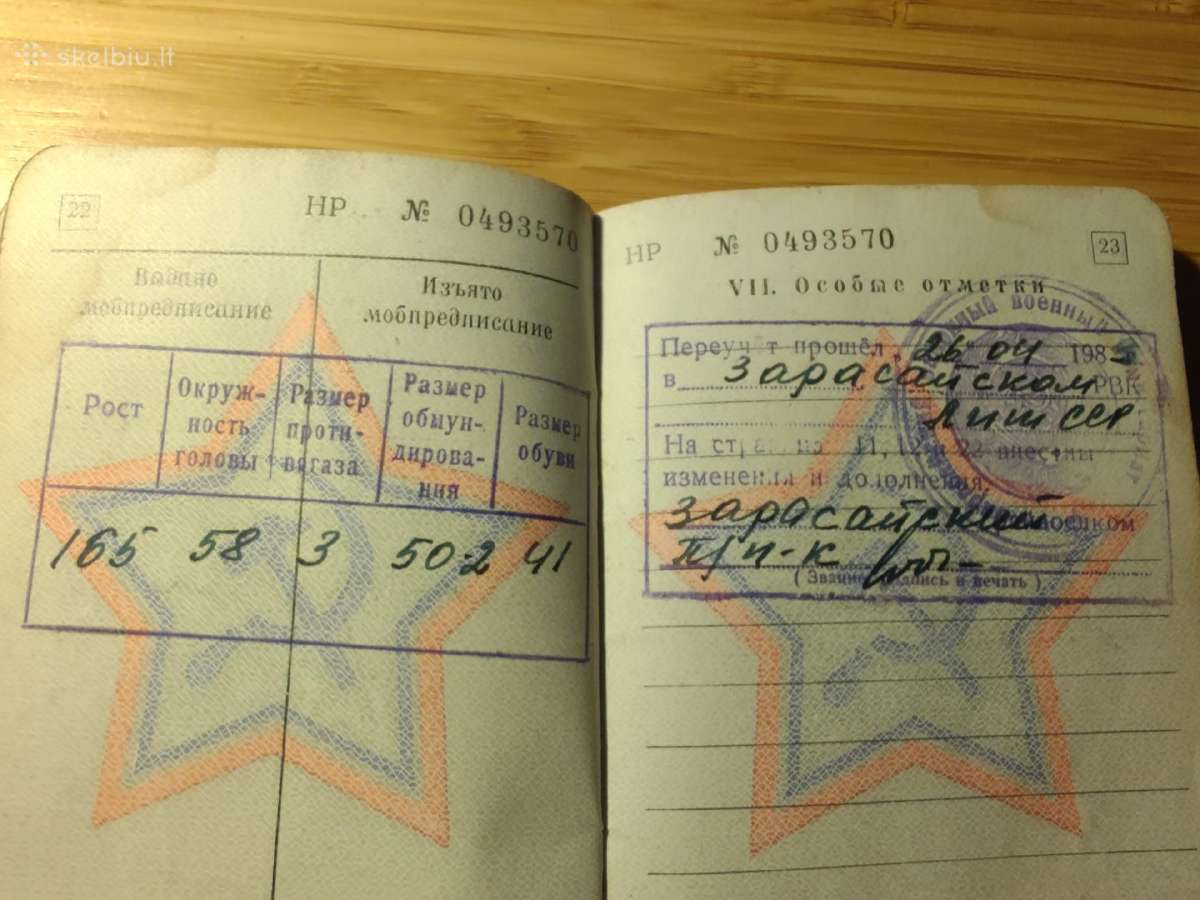 skelbiu.lt
22
НР № 0493570
Выдано мобпредписание
Изъято мобпредписание
Рост
Окруж-
ность
головы
Размер
проти-
вогаза
Размер
обмун-
дирова-
ния
Размер
обуви
165 58 3 50-2 41
НР № 0493570
23
VII. Особые отметки
военный
Переучёт прошёл 26 04 198
в Зарасайском РВК
Лит ССР
На стр. 11, 12 и 22 внесены
изменения и дополнения
Зарасайский военком
П/п-к
(Звание, подпись и печать)